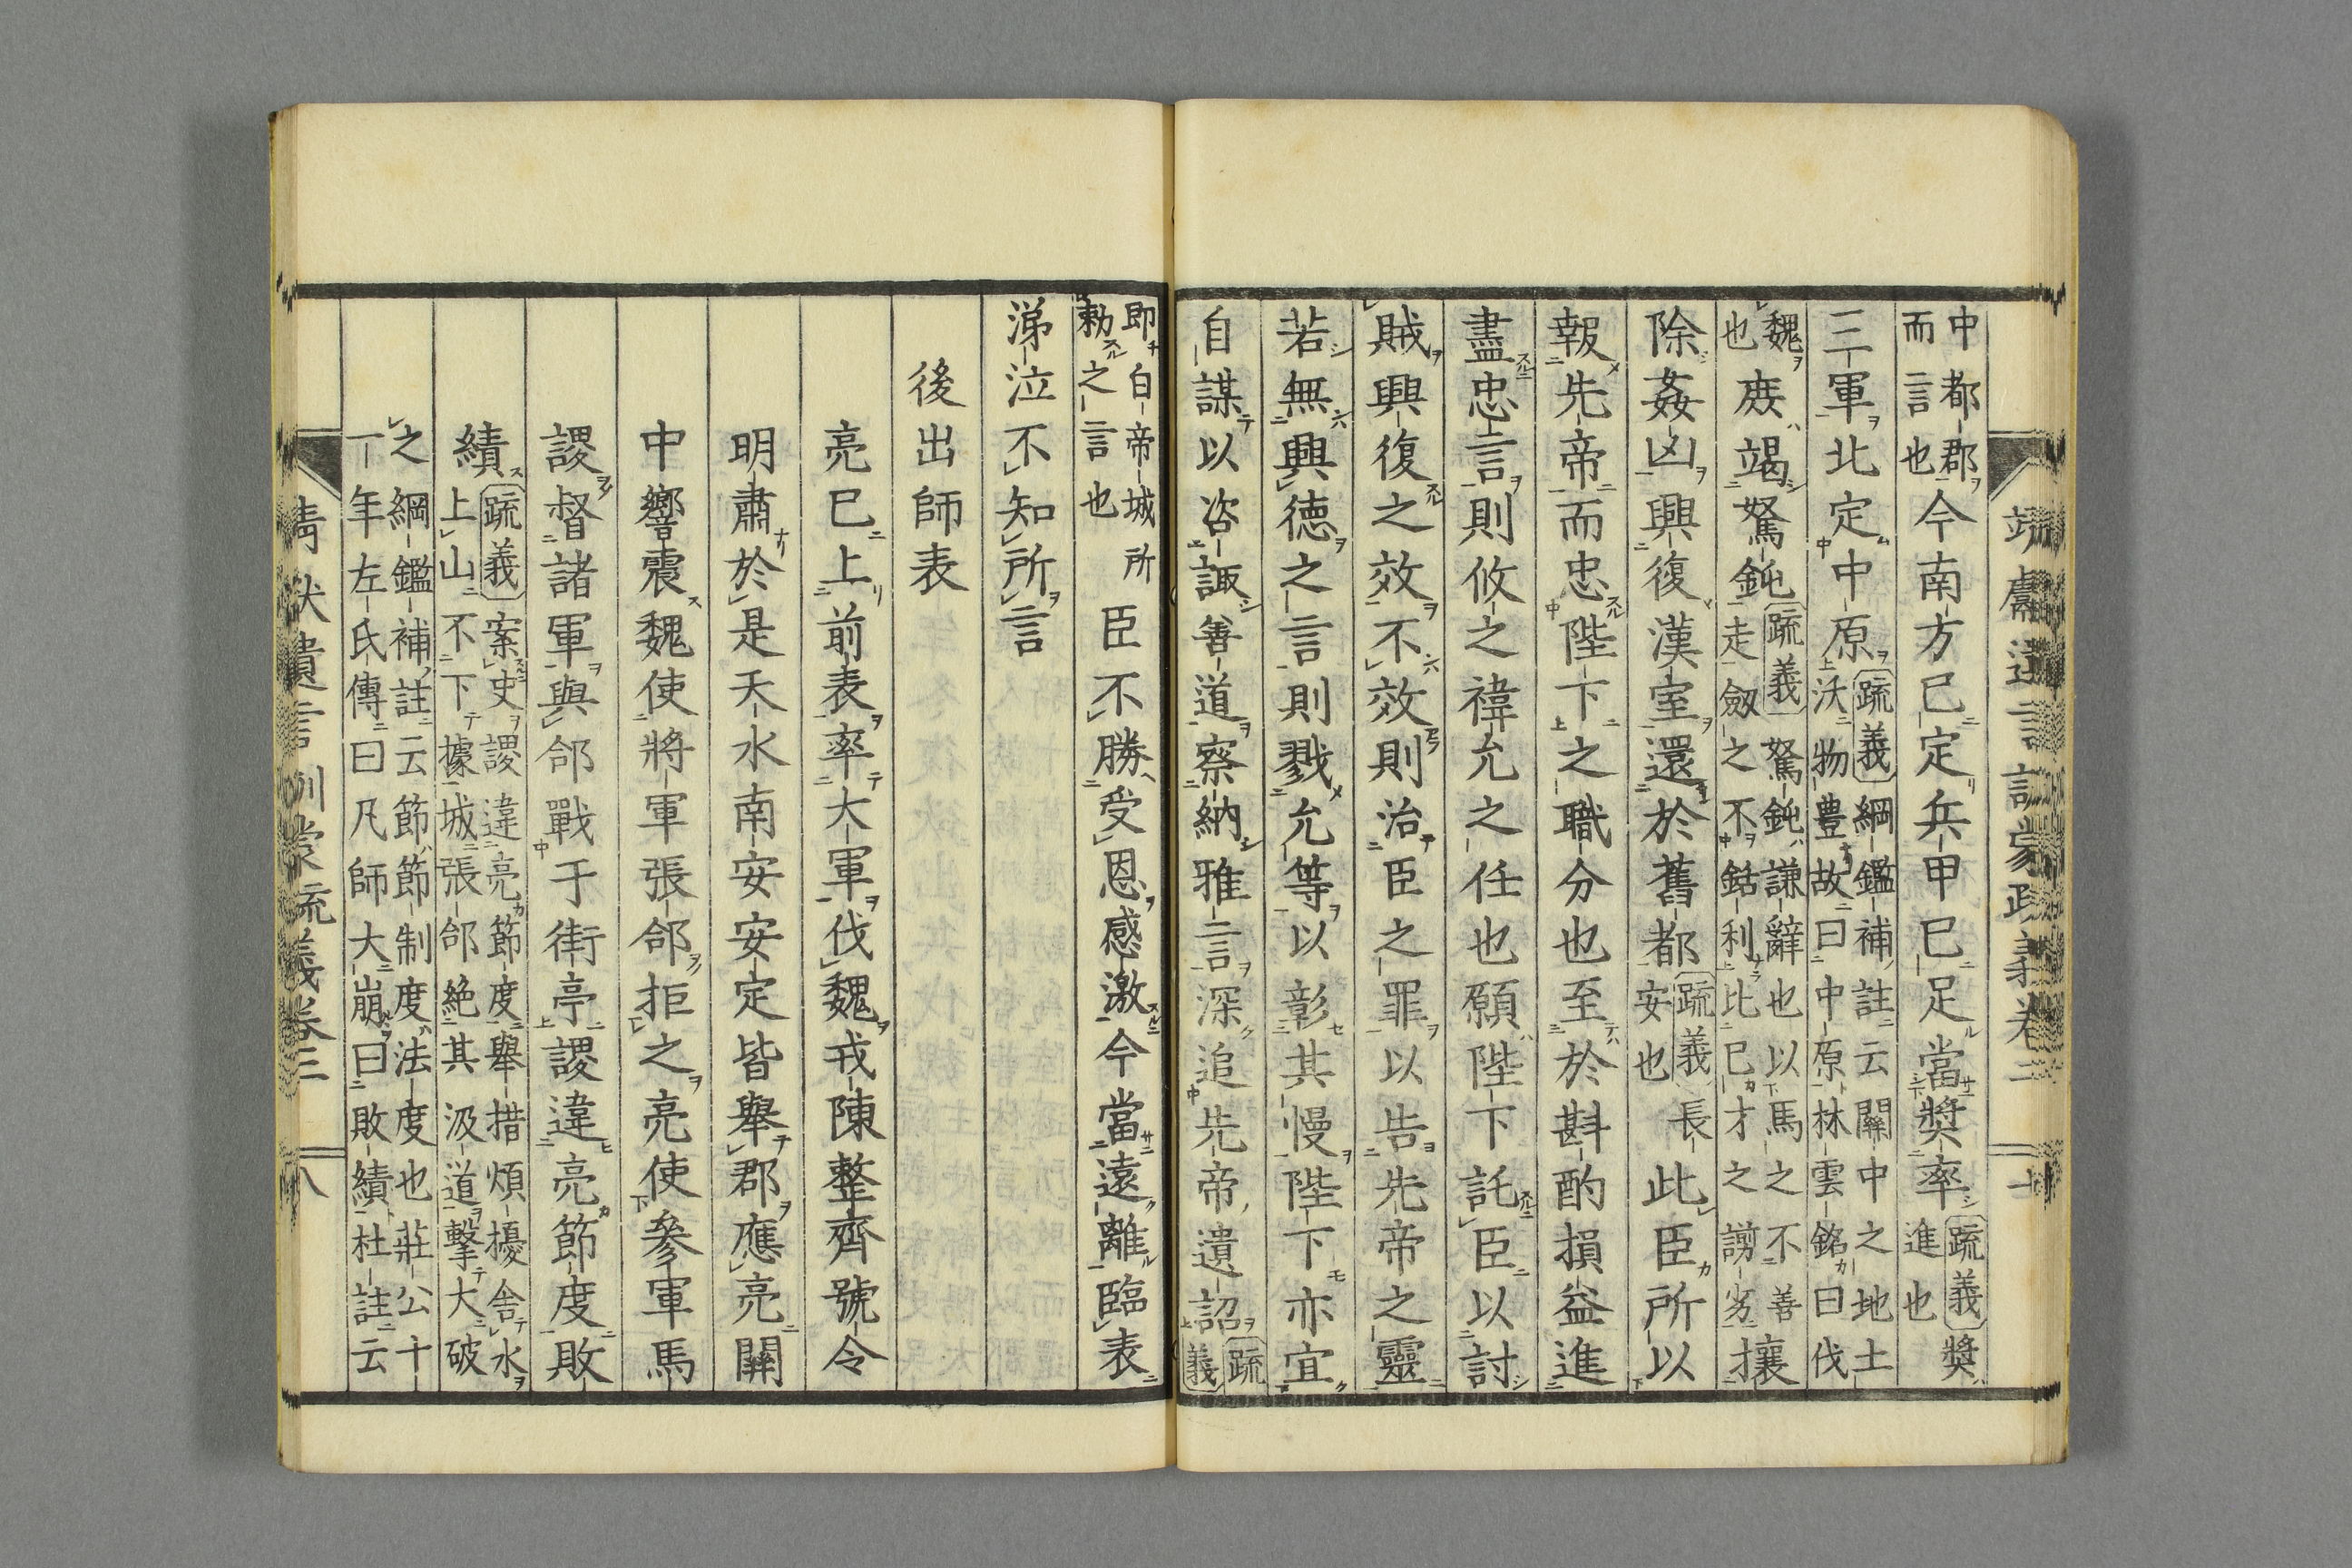 靖獻遺言訓蒙疏義卷三
中都郡而言也今南方已定兵甲已足當奬率疏義奬進也
三軍北定中原疏義綱鑑補註云關中之地土沃物豊故曰中原林雲銘曰伐
魏也庻竭駑鈍疏義駑鈍謙辭也以馬之不善走劔之不銛利比已才之謭劣攘
除姦凶興復漢室還於舊都疏義長安也此臣所以
報先帝而忠陛下之職分也至於斟酌損益進
盡忠言則攸之禕允之任也願陛下託臣以討
賊興復之效不效則治臣之罪以告先帝之靈
若無興徳之言則戮允等以彰其慢陛下亦宜
自謀以咨諏善道察納雅言深追先帝遺詔疏義
即白帝城所勅之言也臣不勝受恩感激今當遠離臨表
涕泣不知所言
後出師表
亮已上前表率大軍伐魏戎陳整齊號令
明肅於是天水南安安定皆舉郡應亮關
中響震魏使將軍張郃拒之亮使參軍馬
謖督諸軍與郃戰于街亭謖違亮節度敗
績疏義案史謖違亮節度舉措煩擾舎水上山不下據城張郃絶其汲道擊大破
之綱鑑補註云節節制度法度也莊公十一年左氏傳曰凡師大崩曰敗績杜註云
靖献遺言訓蒙疏義卷三 八